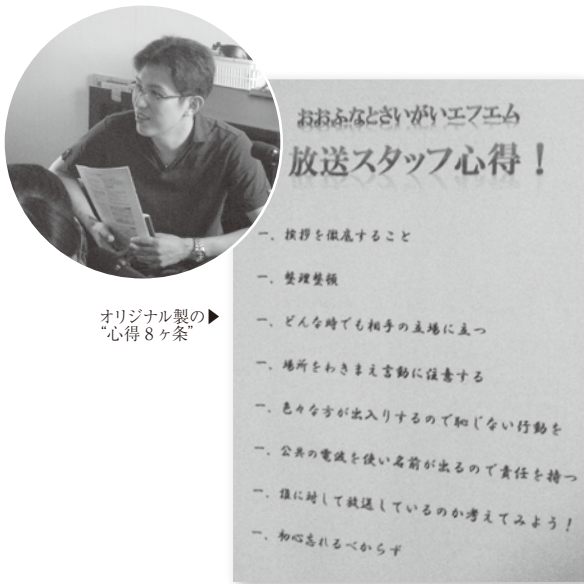 おおふなとさいがいエフエム
放送スタッフ心得！
一、挨拶を徹底すること
一、整理整頓
一、どんな時でも相手の立場に立つ
一、場所をわきまえ言動に注意する
一、色々な方が出入りするので恥じない行動を
一、公共の電波を使い名前が出るので責任を持つ
一、誰に対して放送しているのか考えてみよう！
一、初心忘れるべからず
オリジナル製の▶
“心得８ヶ条”